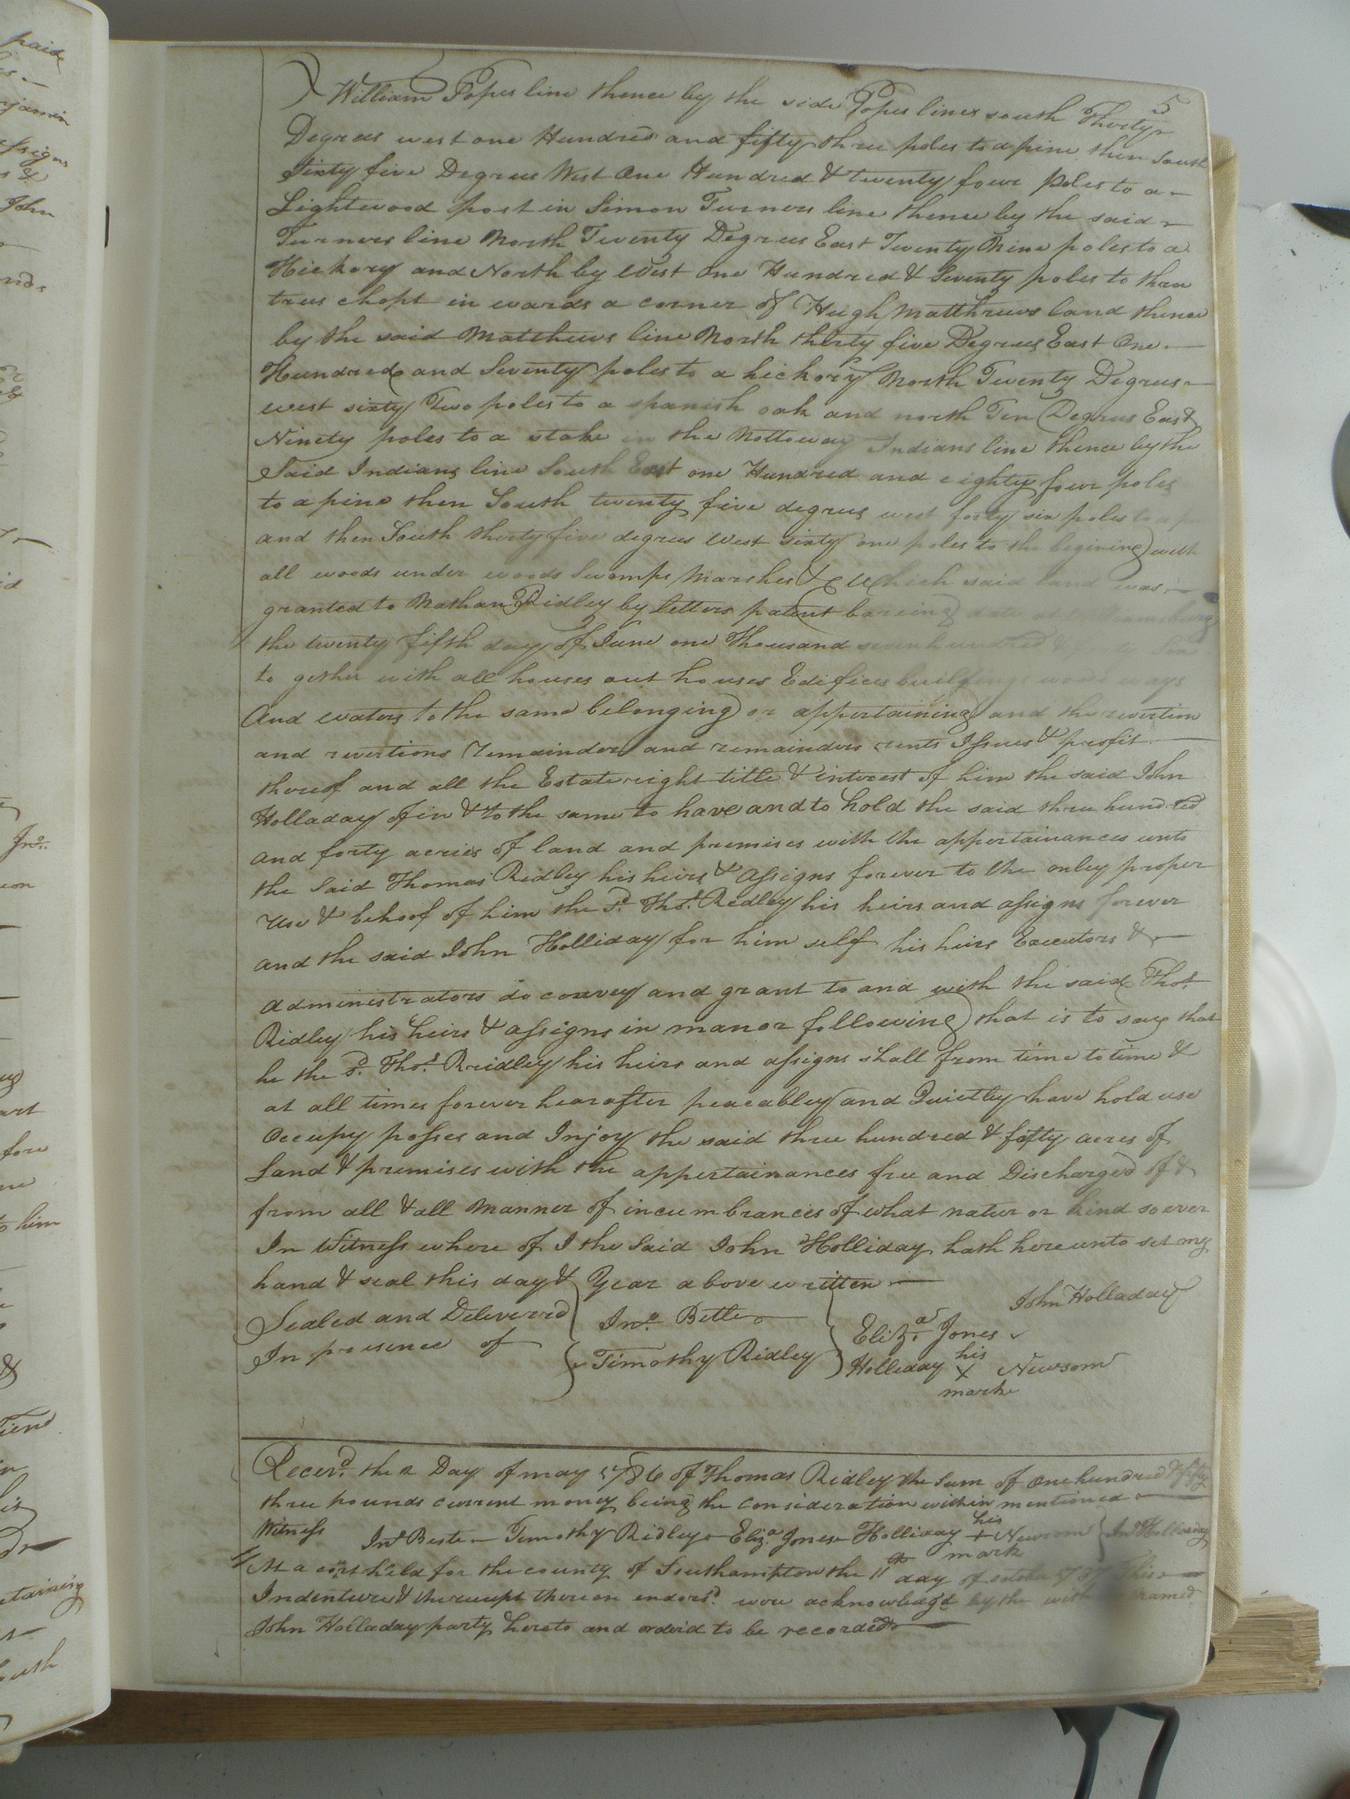 5
William Popes line thence by the side Popes lines south Thirty
Degrees west one Hundred and fifty three poles to a pine then South
Sixty five Degrees West One Hundred & twenty four poles to a
Lightwood post in Simon Turners line thence by the said
Turners line North Twenty Degrees East Twenty Nine poles to a
Hickory and North by West one Hundred & Seventy poles to thre
trees chopt in wards a corner of Hugh Matthews land thence
by the said Matthews line North thirty five Degrees East One
Hundred and Seventy poles to a hickory North Twenty Degrees
west sixty Two poles to a spanish oak and north Ten Degrees East
Ninety poles to a stake in the Nottoway Indians line thence by the
Said Indians line South East one Hundred and eighty four poles
to a pine then South twenty five degrees west forty six poles to a
and then South thirty five degrees West sixty one poles to the begining with
all woods under woods Swamps Marshes &C which said land was
granted to Nathan Ridley by letters patent bareing date at
the twenty fifth day of June one Thousand seven hundred &
to gether with all houses out houses Edifices buildings woods ways
And waters to the same belonging or appertaining and the revertion
and revertions Remainder and remainders rents Issues & profit
thereof and all the Estate right title & interest of him the said John
Holladay of in & to the same to have and to hold the said three hundred
and forty acries of land and premises with the appertainances unto
the Said Thomas Ridley his heirs & assigns forever to the onley proper
Use & behoof of him the sd. Thos. Ridley his heirs and assigns forever
and the said John Holliday for him self his heirs Executors &
administrators do convey and grant to and with the said Thos.
Ridley his heirs & assigns in manor following that is to say that
he the sd. Thos. Reidley his heirs and assigns shall from time to time &
at all times forever hearafter peaceabley and Quietley have hold use
Occupy posses and Injoy the said three hundred & fofty acres of
Land & premises with the appertainances free and Discharged of &
from all & all Manner of incumbrances of what natur or kind so ever
In Witness where of I the Said John Holliday hath hereunto set my
hand & seal this day & Year above written
John Holladay
Sealed and Deliverred Jno. Bittle Eliza. Jones
In presence of Timothy Ridley Holliday his X mark Newsom
Receivd. the 2 Day of may 1786 of Thomas Ridley the Sum of one hundred & fifty
three pounds current money being the consideration within mentioned
Witness Jno. Beste Timothy Ridley Eliza. Jones Holliday his + mark Newsom Jno. Holliday
At a court held for the county of Southampton the 11th day of october This
Indenture & the receipt thereon endorsd. were acknowledgd by the named
John Holladay party hereto and orderd to be recorded